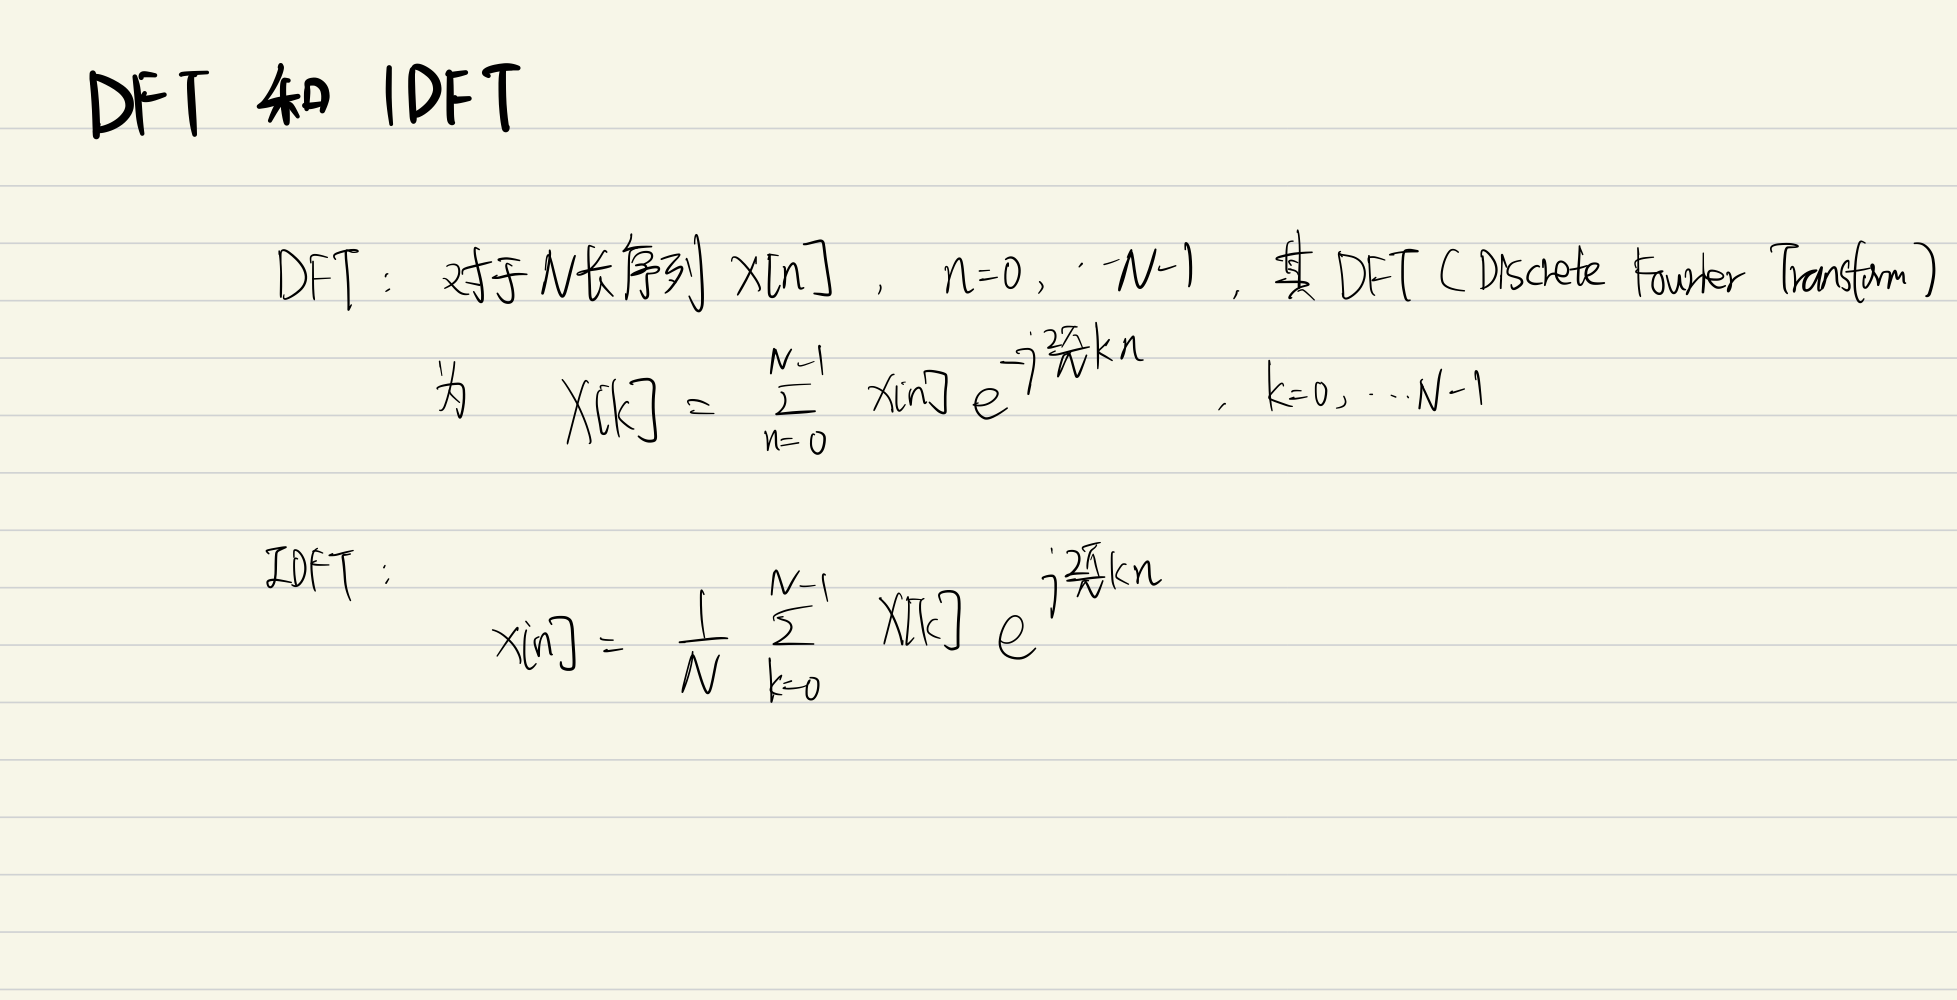 DFT 和 IDFT
DFT: 对于N长序列 x[n], n=0, ··· N-1, 其 DFT (Discrete Fourier Transform)
为 X[k] = \sum_{n=0}^{N-1} x[n] e^{-j\frac{2π}{N}kn}, k=0, ··· N-1
IDFT:
x[n] = \frac{1}{N} \sum_{k=0}^{N-1} X[k] e^{j\frac{2π}{N}kn}